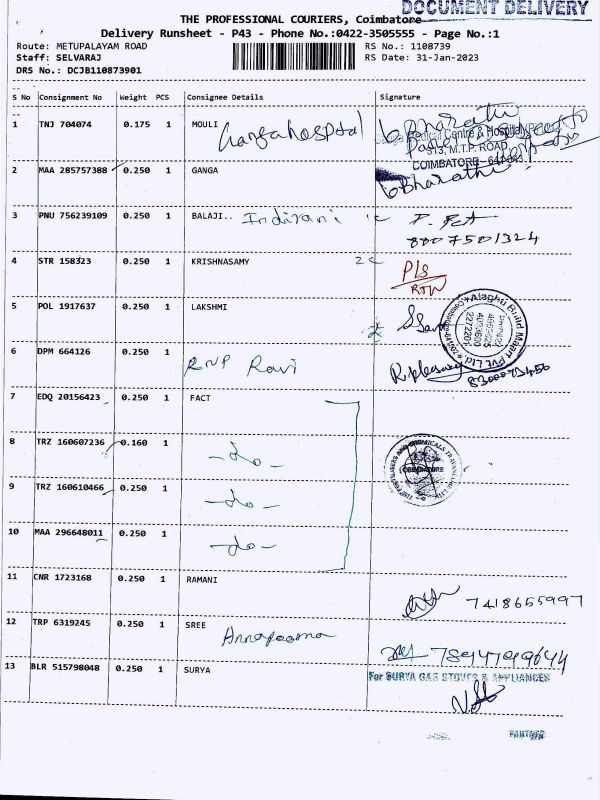 DOCUMENT DELIVERY
THE PROFESSIONAL COURIERS, Coimbatore
Delivery Runsheet - P43 - Phone No.:0422-3505555 - Page No.:1
Route: METUPALAYAM ROAD RS No.: 1108739
Staff: SELVARAJ RS Date: 31-Jan-2023
DRS No.: DCJB110873901
S No Consignment No Weight PCS Consignee Details Signature
1 TNJ 704074 0.175 1 MOULI
Ganga hospital
Medical Centre & Hospital
313, M.T.P. ROAD
COIMBATORE
2 MAA 285757388 0.250 1 GANGA
Bharathi
3 PNU 756239109 0.250 1 BALAJI.. Indirani
8807501324
4 STR 158323 0.250 1 KRISHNASAMY
P/s
RTN
5 POL 1917637 0.250 1 LAKSHMI
Alaghu Build Maart PVT Ltd
6 DPM 664126 0.250 1
RNP Ravi
7 EDQ 20156423 0.250 1 FACT
8 TRZ 160607236 0.160 1
-do-
COIMBATORE
9 TRZ 160610466 0.250 1
-do-
10 MAA 296648011 0.250 1
-do-
11 CNR 1723168 0.250 1 RAMANI
7418655997
12 TRP 6319245 0.250 1 SREE
Annapoorna
13 BLR 515798048 0.250 1 SURYA
For SURYA GAS STOVES & APPLIANCES
PARTNER